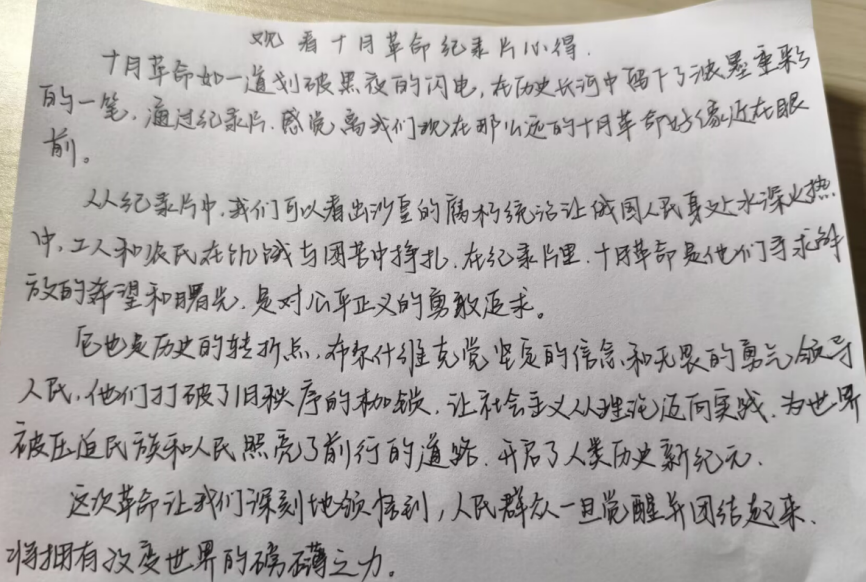 观看十月革命纪录片心得.
十月革命如一道划破黑夜的闪电,在历史长河中留下了浓墨重彩
的一笔.通过纪录片.感觉离我们现在那么远的十月革命好像近在眼
前。
从纪录片中,我们可以看出沙皇的腐朽统治让俄国人民身处水深火热
中,工人和农民在饥饿与困苦中挣扎.在纪录片里.十月革命是他们寻求解
放的希望和曙光,是对公平正义的勇敢追求。
它也是历史的转折点,布尔什维克党坚定的信念、和无畏的勇气领导
人民,他们打破了旧秩序的枷锁,让社会主义从理论迈向实践.为世界
被压迫民族和人民照亮了前行的道路.开启了人类历史新纪元.
这次革命让我们深刻地领悟到,人民群众一旦觉醒并团结起来、
将拥有改变世界的磅礴之力。